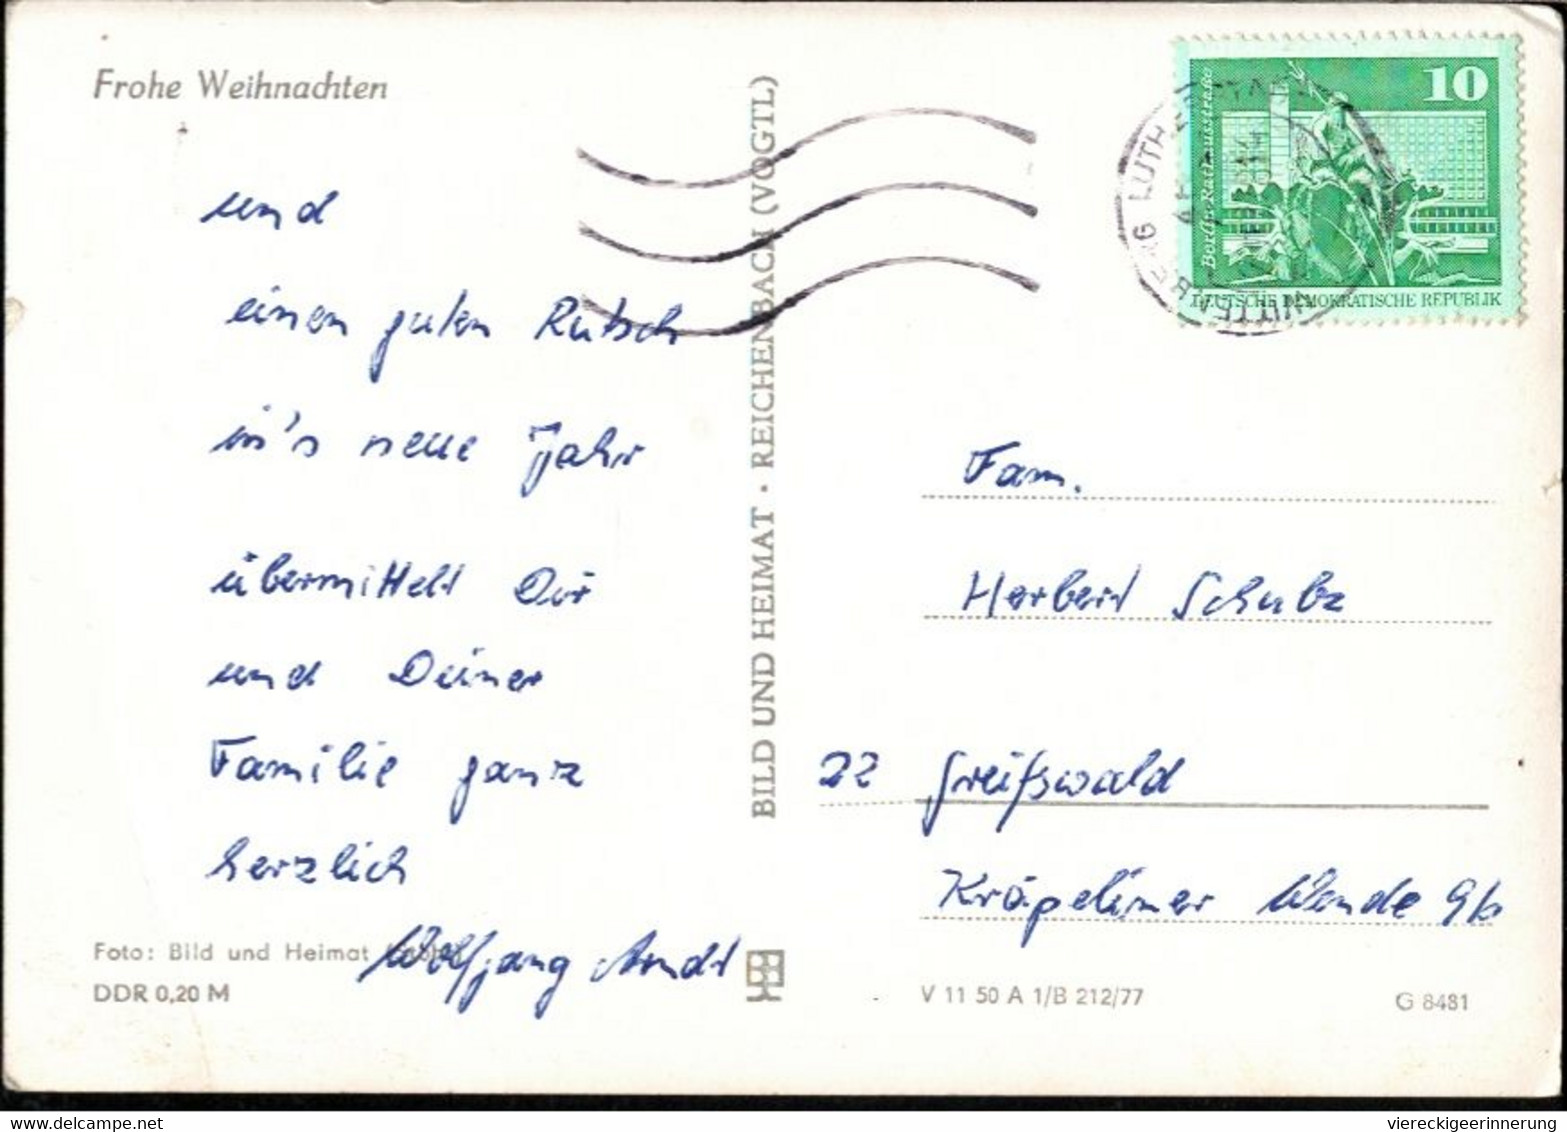 Frohe Weihnachten
und
einen guten Rutsch
in's neue Jahr
übermittelt Dir
und Deiner
Familie ganz
herzlich
Wolfgang Arndt
Foto: Bild und Heimat
DDR 0,20 M
BILD UND HEIMAT · REICHENBACH (VOGTL)
10
Berlin, Rathausstraße
DEUTSCHE DEMOKRATISCHE REPUBLIK
Fam.
Herbert Schulz
22 Greifswald
Kröpeliner Wende 9b
V 11 50 A 1/B 212/77
G 8481
viereckigeerinnerung